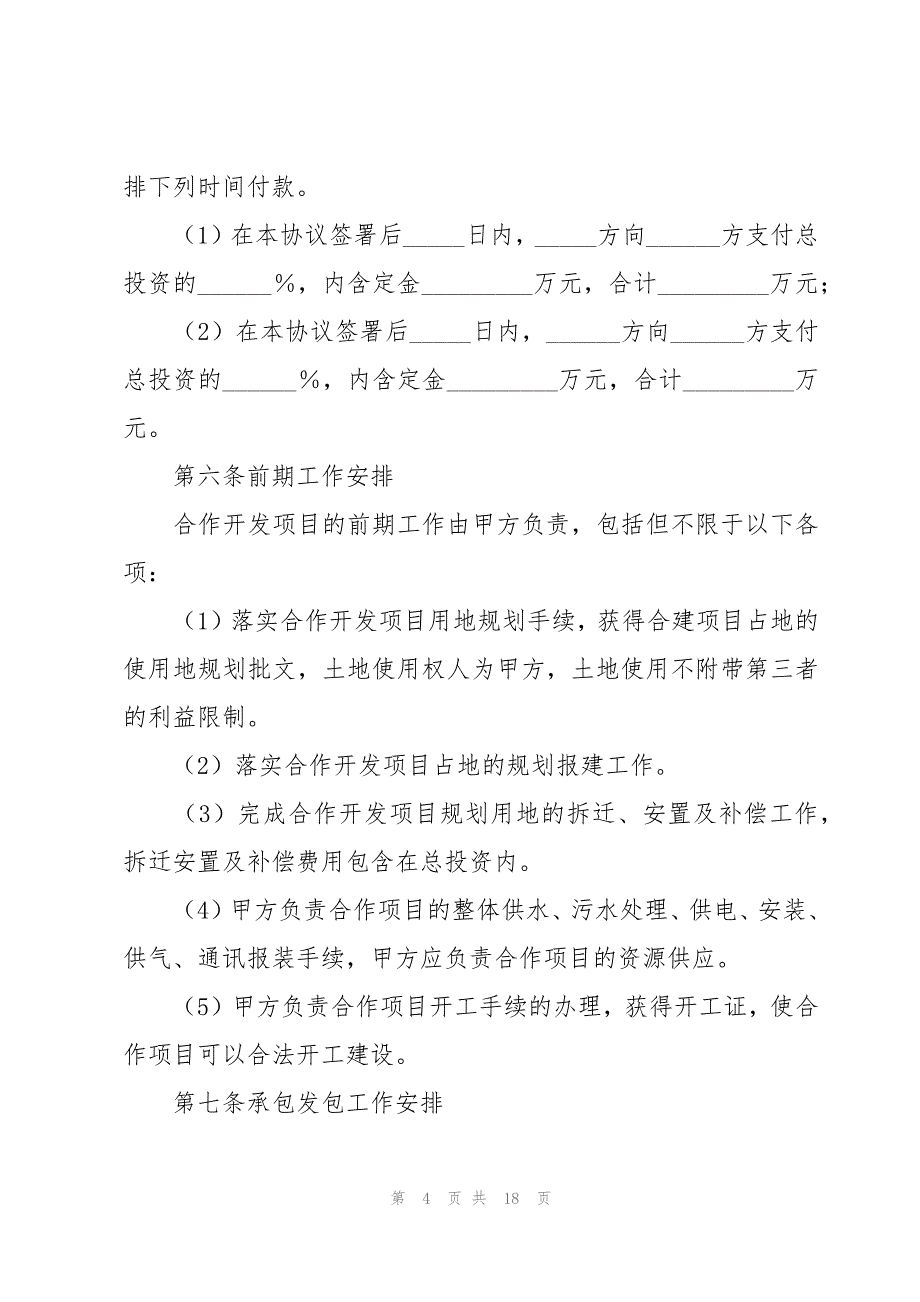 排下列时间付款。
（1）在本协议签署后_____日内，_____方向______方支付总
投资的______％，内含定金_________万元，合计_________万元；
（2）在本协议签署后_____日内，______方向______方支付
总投资的______％，内含定金_________万元，合计_________万
元。
第六条前期工作安排
合作开发项目的前期工作由甲方负责，包括但不限于以下各
项：
（1）落实合作开发项目用地规划手续，获得合建项目占地的
使用地规划批文，土地使用权人为甲方，土地使用不附带第三者
的利益限制。
（2）落实合作开发项目占地的规划报建工作。
（3）完成合作开发项目规划用地的拆迁、安置及补偿工作，
拆迁安置及补偿费用包含在总投资内。
（4）甲方负责合作项目的整体供水、污水处理、供电、安装、
供气、通讯报装手续，甲方应负责合作项目的资源供应。
（5）甲方负责合作项目开工手续的办理，获得开工证，使合
作项目可以合法开工建设。
第七条承包发包工作安排
第 4 页 共 18 页